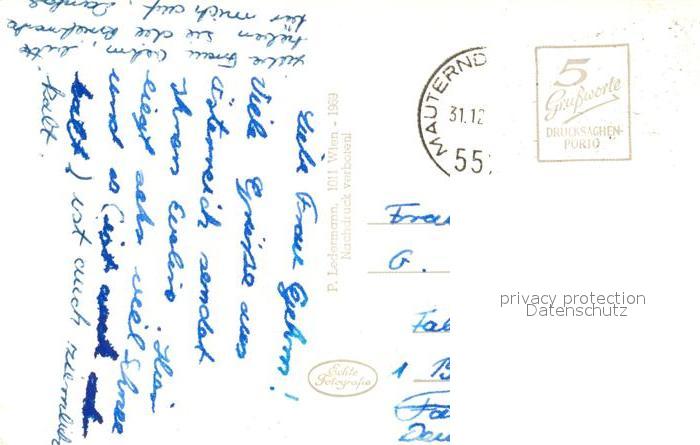 Liebe Frau Gehm!
Viele Grüsse aus
Österreich sendet
Ihnen Eveline. Hier
liegt sehr viel Schnee
und es (ist
kalt) ist auch ziemlich
kalt.
Liebe Frau Gehm, bitte
heben Sie die Briefmarke
für mich auf. Danke
P. Ledermann, 1011 Wien - 1969
Nachdruck verboten!
Echte
Fotografie
MAUTERND
31.12
55
5
Grußworte
DRUCKSACHEN-
PORTO
Frau
G.
1 B
privacy protection
Datenschutz